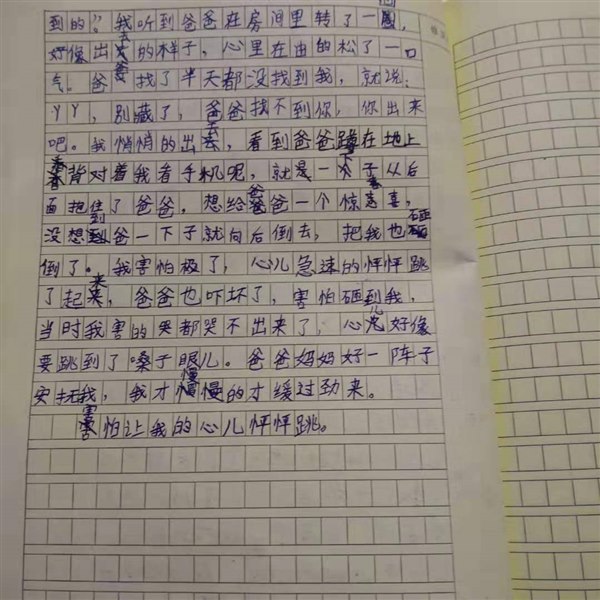 到的？我听到爸爸在房间里转了一圈，
好像出去的样子，心里在由的松了一口
气。爸爸找了半天都没找到我，就说：
丫丫，别藏了，爸爸找不到你，你出来
吧。我悄悄的出去，看到爸爸蹲在地上
背对着我看手机呢，就是一下子从后
面抱住了爸爸，想给爸爸一个惊喜，
没想到爸一下子就向后倒去，把我也砸
倒了。我害怕极了，心儿急速的怦怦跳
了起来，爸爸也吓坏了，害怕砸到我，
当时我害的哭都哭不出来了，心儿好像
要跳到了嗓子眼儿。爸爸妈妈好一阵子
安抚我，我才慢慢的才缓过劲来。
害怕让我的心儿怦怦跳。